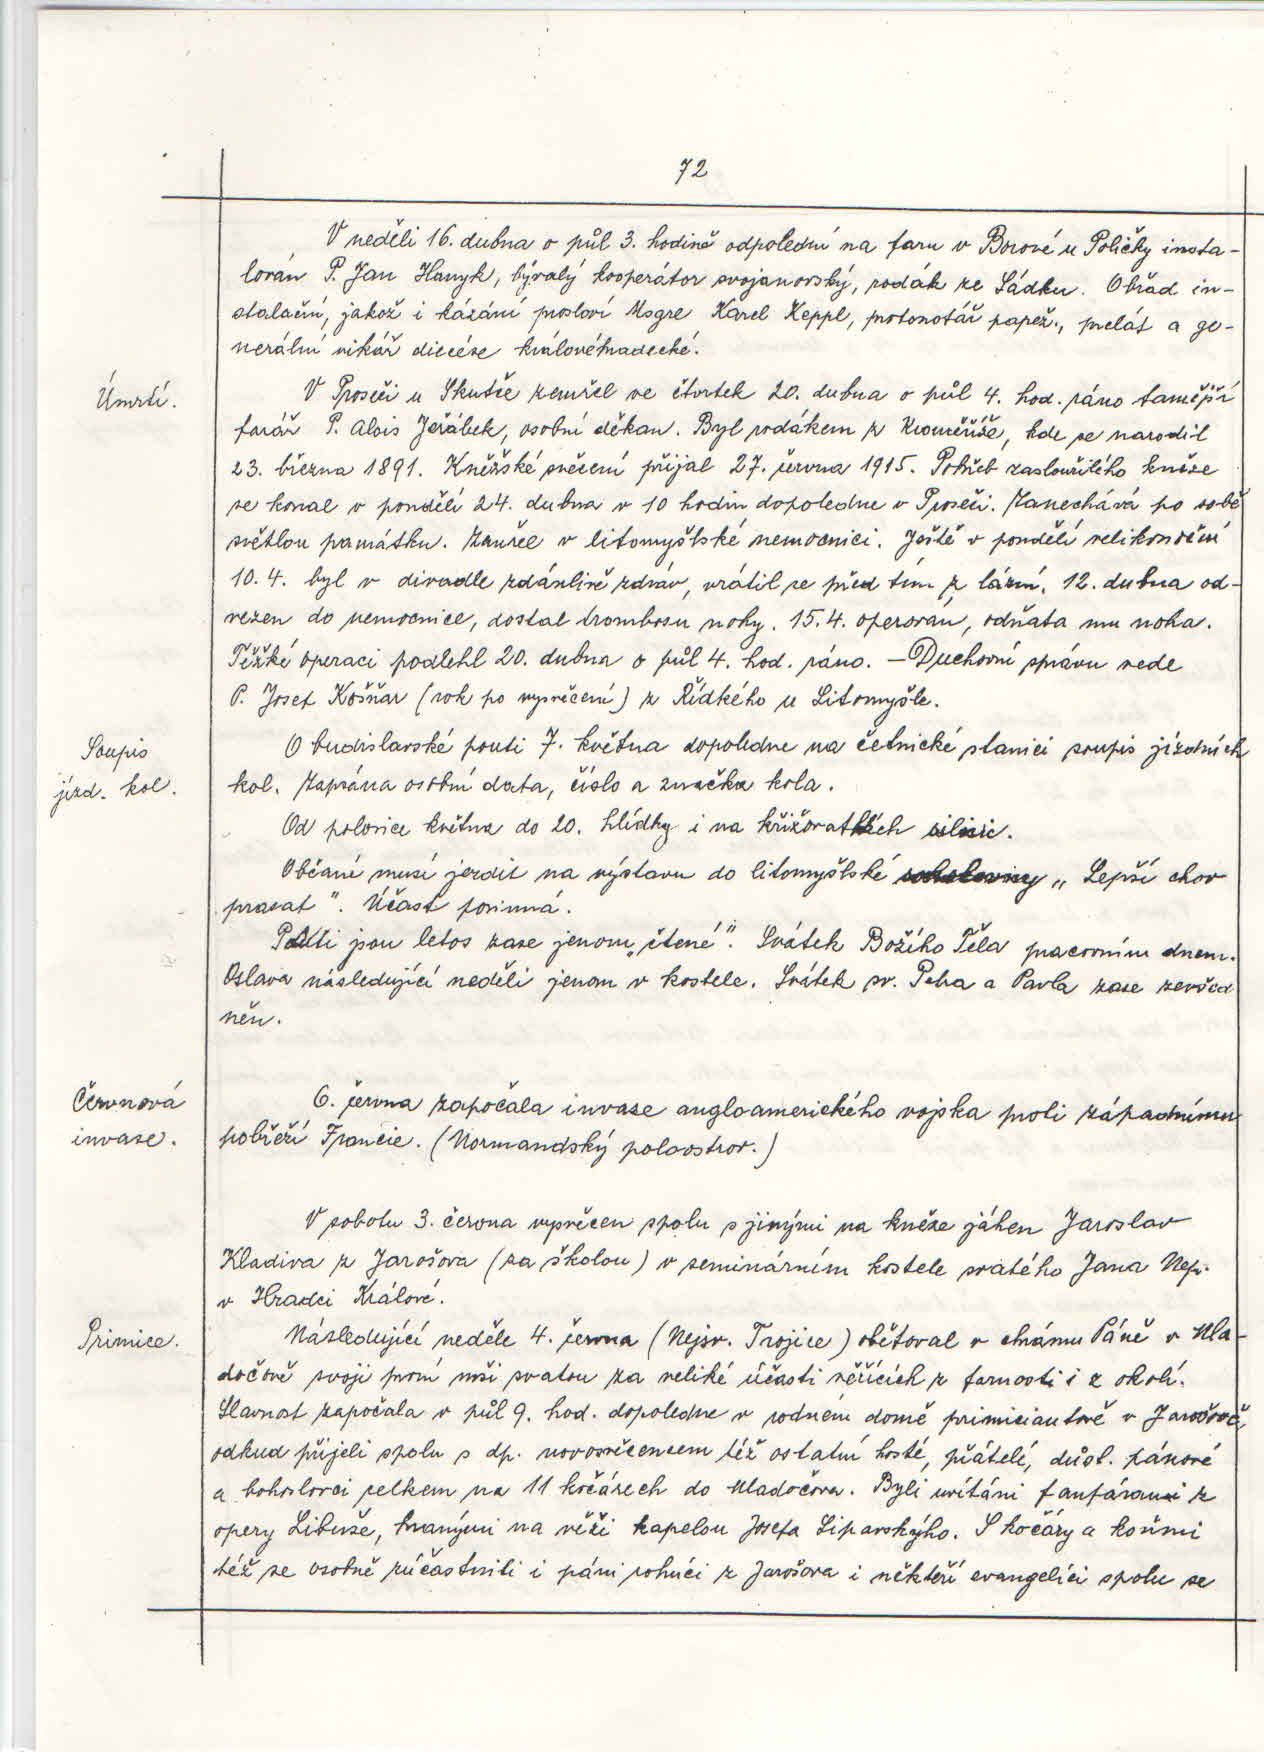 72
V neděli 16. dubna o půl 3. hodině odpolední na faru v Borové u Poličky insta-
lován P. Jan Hanyk, bývalý kooperátor svojanovský, rodák ze Sádku. Obřad in-
stalační, jakož i kázání prosloví Msgre Karel Keppl, protonotář papež., prelát a ge-
nerální vikář diecése královéhradecké.
Úmrtí.
V Proseči u Skutče zemřel ve čtvrtek 20. dubna o půl 4. hod. ráno tamější
farář P. Alois Jeřábek, osobní děkan. Byl rodákem z Kroměříže, kde se narodil
23. března 1891. Kněžské svěcení přijal 27. června 1915. Pohřeb zasloužilého kněze
se konal v pondělí 24. dubna v 10 hodin dopoledne v Proseči. Zanechává po sobě
světlou památku. Zemřel v litomyšlské nemocnici. Ještě v pondělí velikonoční
10. 4. byl v divadle zdánlivě zdráv, vrátil se před tím z lázní. 12. dubna od-
vezen do nemocnice, dostal trombosu nohy. 15. 4. operován, odňata mu noha.
Těžké operaci podlehl 20. dubna o půl 4. hod. ráno. – Duchovní správu vede
P. Josef Košňar (rok po vysvěcení) z Řídkého u Litomyšle.
Soupis
jízd. kol.
O budislavské pouti 7. května dopoledne na četnické stanici soupis jízdních
kol. Zapsána osobní data, číslo a značka kola.
Od polovice května do 20. hlídky i na křižovatkách silnic.
Občané musí jezdit na výstavu do litomyšlské sokolovny „Lepší chov
prasat". Účast povinná.
Pouti jsou letos zase jenom „čtené". Svátek Božího Těla pracovním dnem.
Oslava následující neděli jenom v kostele. Svátek sv. Petra a Pavla zase zevšed
něn.
Červnová
invase.
6. června započala invase angloamerického vojska proti západnímu
pobřeží Francie. (Normandský poloostrov.)
V sobotu 3. června vysvěcen spolu s jinými na kněze jáhen Jaroslav
Kladiva z Jarošova (za školou) v seminárním kostele svatého Jana Nep.
v Hradci Králové.
Primice.
Následující neděle 4. června (Nejsv. Trojice) obětoval v chrámu Páně v Mla-
dočově svoji první mši svatou za veliké účasti věřících z farnosti i z okolí.
Slavnost započala v půl 9. hod. dopoledne v rodném domě primiciantově v Jarošově,
odkud přijeli spolu s dp. novosvěcencem též ostatní hosté, přátelé, důst. pánové
a bohoslovci celkem na 11 kočárech do Mladočova. Byli uvítáni fanfárami z
opery Libuše, hranými na věži kapelou Josefa Liparského. S kočáry a koňmi
též se osobně zúčastnili i páni rolníci z Jarošova i někteří evangelíci spolu se